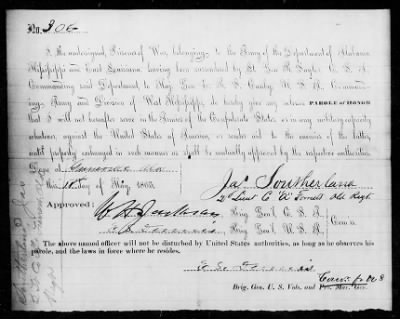 No. 306
I, the undersigned, Prisoner of War, belonging to the Army of the Department of Alabama,
Mississippi and East Louisiana, having been surrendered by Lt. Gen. R. Taylor, C. S. A.
Commanding said Department to Maj. Gen. E. R. S. Canby, U. S. A. Com-
manding Army and Division of West Mississippi, do hereby give my solemn PAROLE OF HONOR
that I will not hereafter serve in the Armies of the Confederate States, or in any military capacity
whatever, against the United States of America, or render aid to the enemies of the latter,
until properly exchanged in such manner as shall be mutually approved by the respective authorities.
Done at Gainesville Ala
this day of May, 1865.
Jas Southerland
2d Lieut Co "A" Forrest Old Regt
Approved:
W H Jackson Brig. Gen'l, C. S. A.
Brig. Gen'l, U. S. V. Com'rs
The above named officer will not be disturbed by United States authorities, as long as he observes his
parole, and the laws in force where he resides.
Brig. Gen. U. S. Vols. and